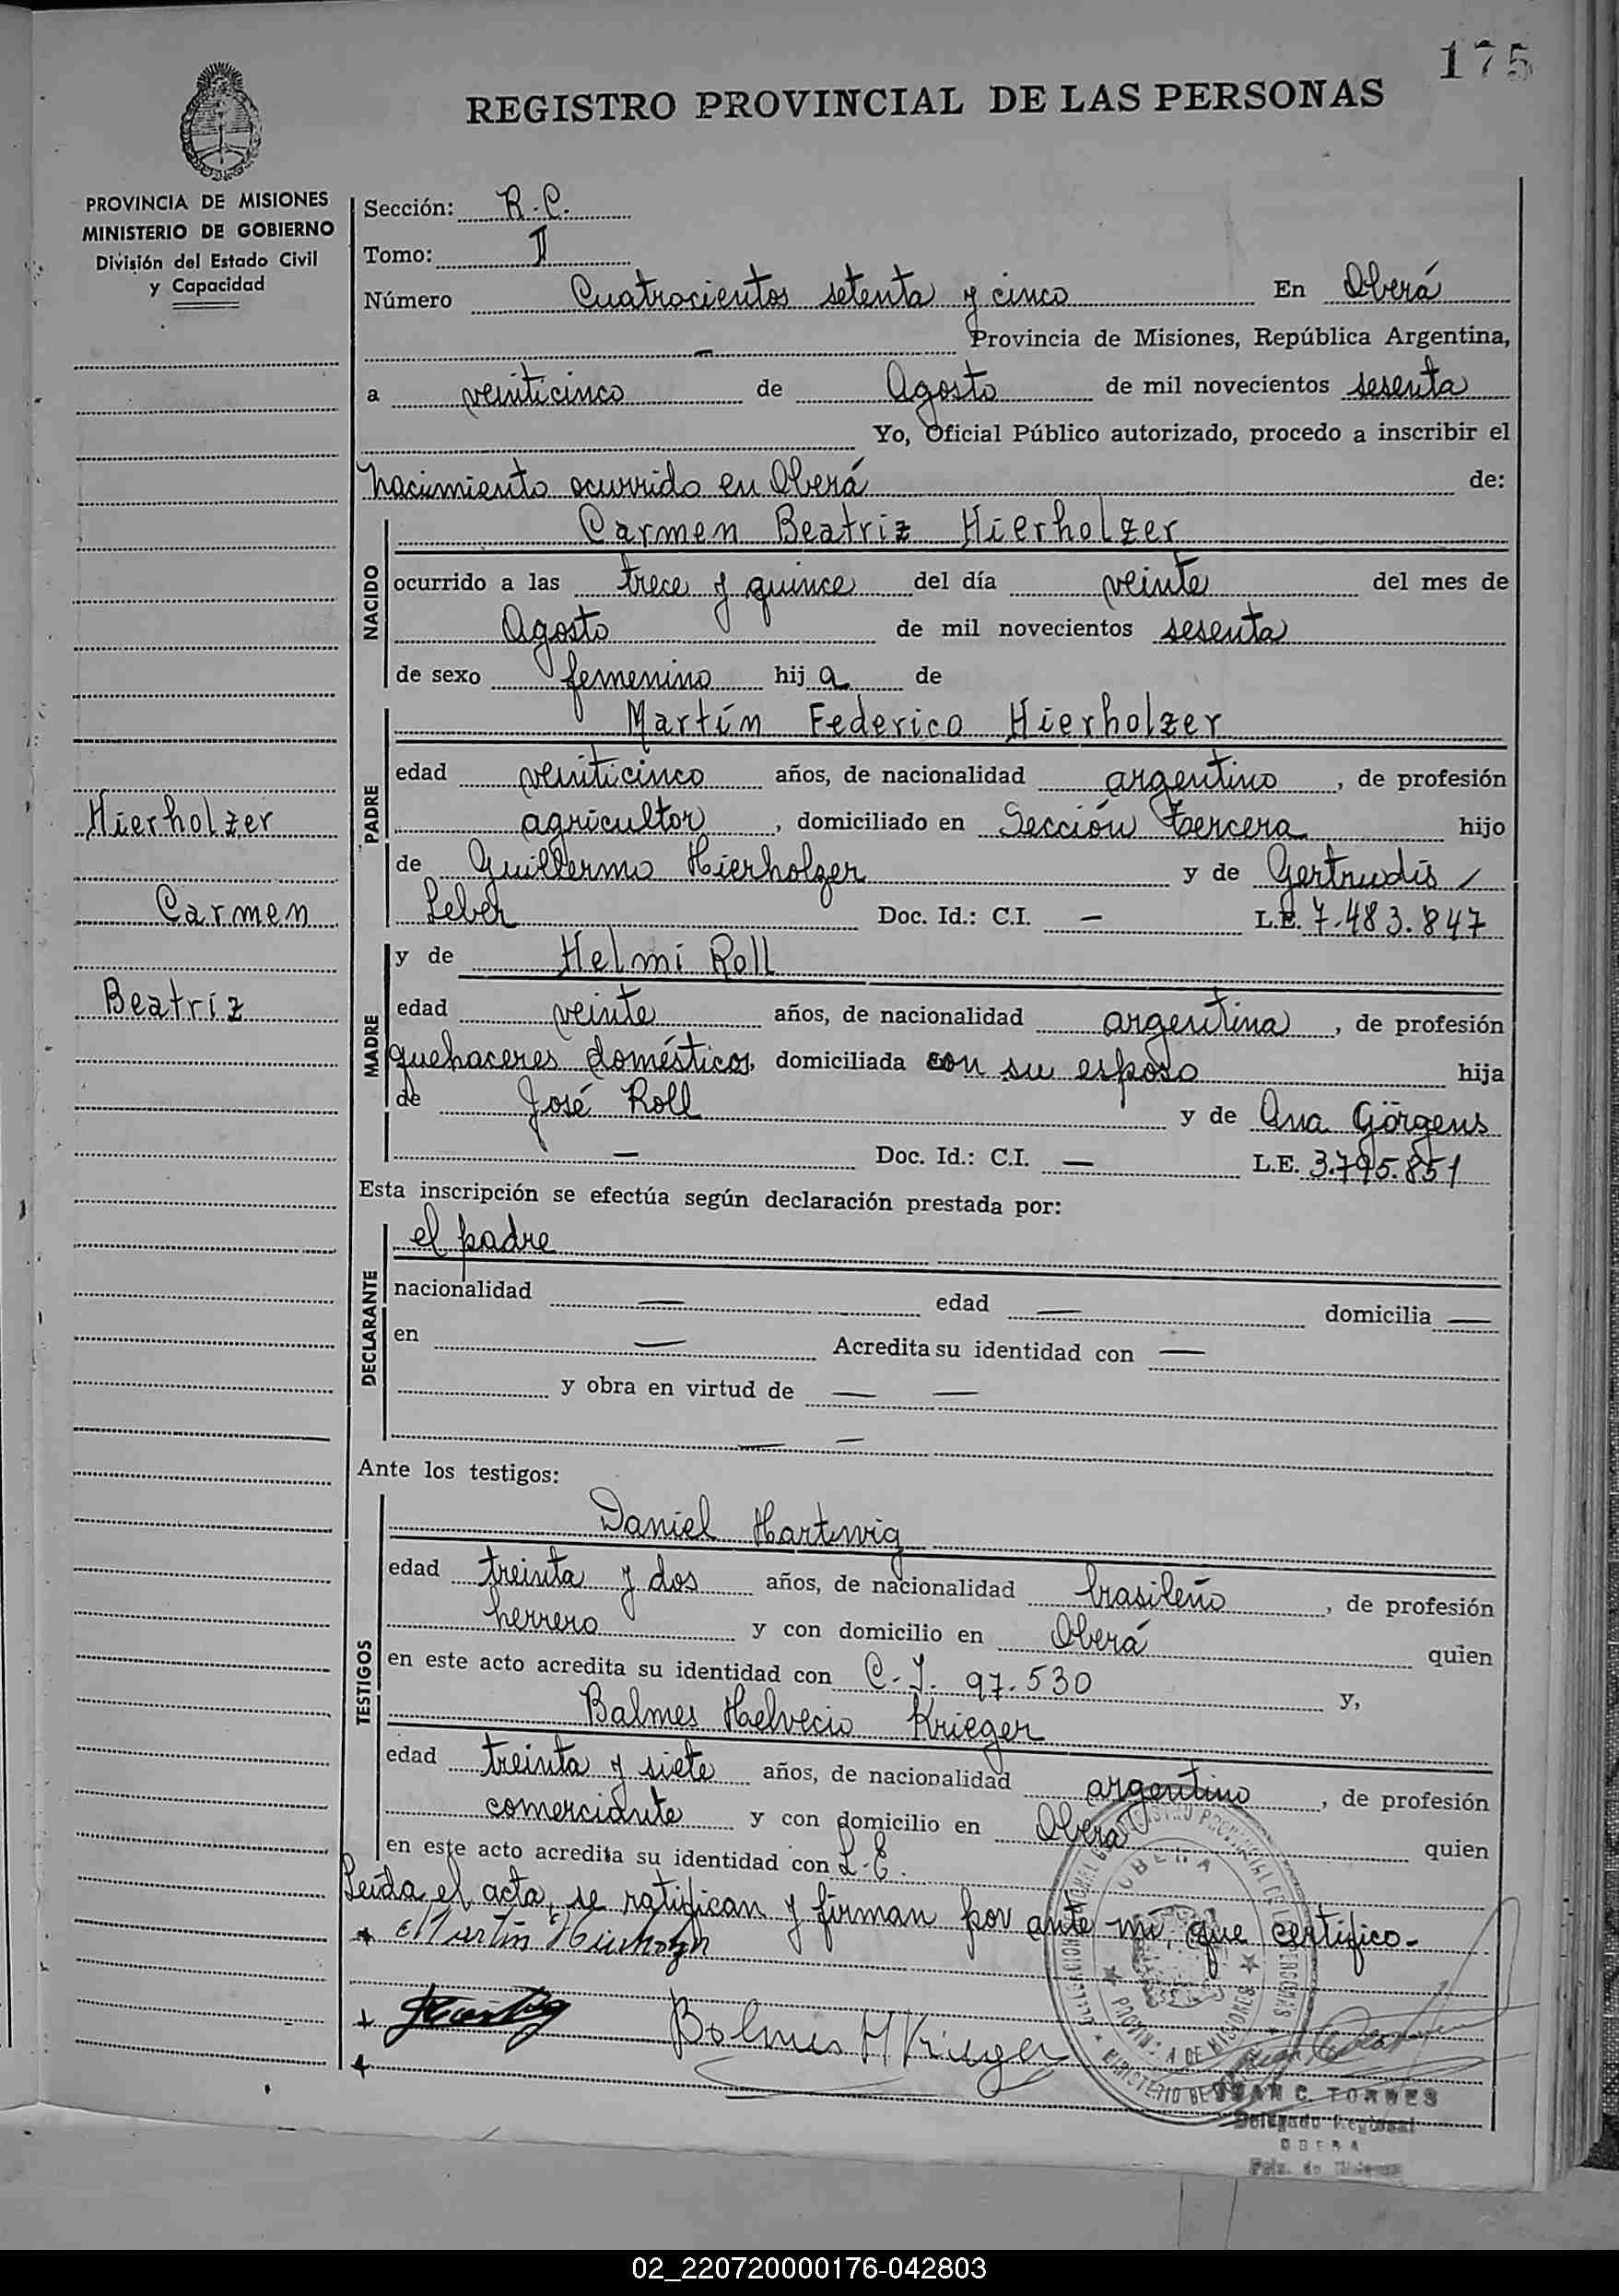 175
REGISTRO PROVINCIAL DE LAS PERSONAS
PROVINCIA DE MISIONES
MINISTERIO DE GOBIERNO
División del Estado Civil
y Capacidad
Hierholzer
Carmen
Beatríz
Sección: R.C.
Tomo: II
Número Cuatrocientos setenta y cinco En Oberá
— Provincia de Misiones, República Argentina,
a veinticinco de Agosto de mil novecientos sesenta
Yo, Oficial Público autorizado, procedo a inscribir el
nacimiento ocurrido en Oberá de:
NACIDO
Carmen Beatriz Hierholzer
ocurrido a las trece y quince del día veinte del mes de
Agosto de mil novecientos sesenta
de sexo femenino hij a de
PADRE
Martín Federico Hierholzer
edad veinticinco años, de nacionalidad argentino, de profesión
agricultor, domiciliado en Sección Tercera hijo
de Guillermo Hierholzer y de Gertrudis /
Doc. Id.: C.I. — L.E. 7.483.847
MADRE
y de Helmi Roll
edad veinte años, de nacionalidad argentina, de profesión
quehaceres domésticos, domiciliada con su esposo hija
de José Roll y de Ana Görgens
— Doc. Id.: C.I. — L.E. 3.795.851
Esta inscripción se efectúa según declaración prestada por:
DECLARANTE
el padre
nacionalidad — edad — domicilia —
en — Acredita su identidad con —
y obra en virtud de — —
— —
Ante los testigos:
TESTIGOS
Daniel Hartwig
edad treinta y dos años, de nacionalidad brasileño, de profesión
herrero y con domicilio en Oberá quien
en este acto acredita su identidad con C.I. 97.530 y,
Balmes Helvecio Krieger
edad treinta y siete años, de nacionalidad argentino, de profesión
comerciante y con domicilio en Oberá quien
en este acto acredita su identidad con L.E.
Leída el acta, se ratifican y firman por ante mí, que certifico.-
Martin Hierholzer
Balmes H Krieger
OBERA
PROVINCIA DE MISIONES
JUAN C. TORRES
Delegado Regional
OBERA
02_220720000176-042803